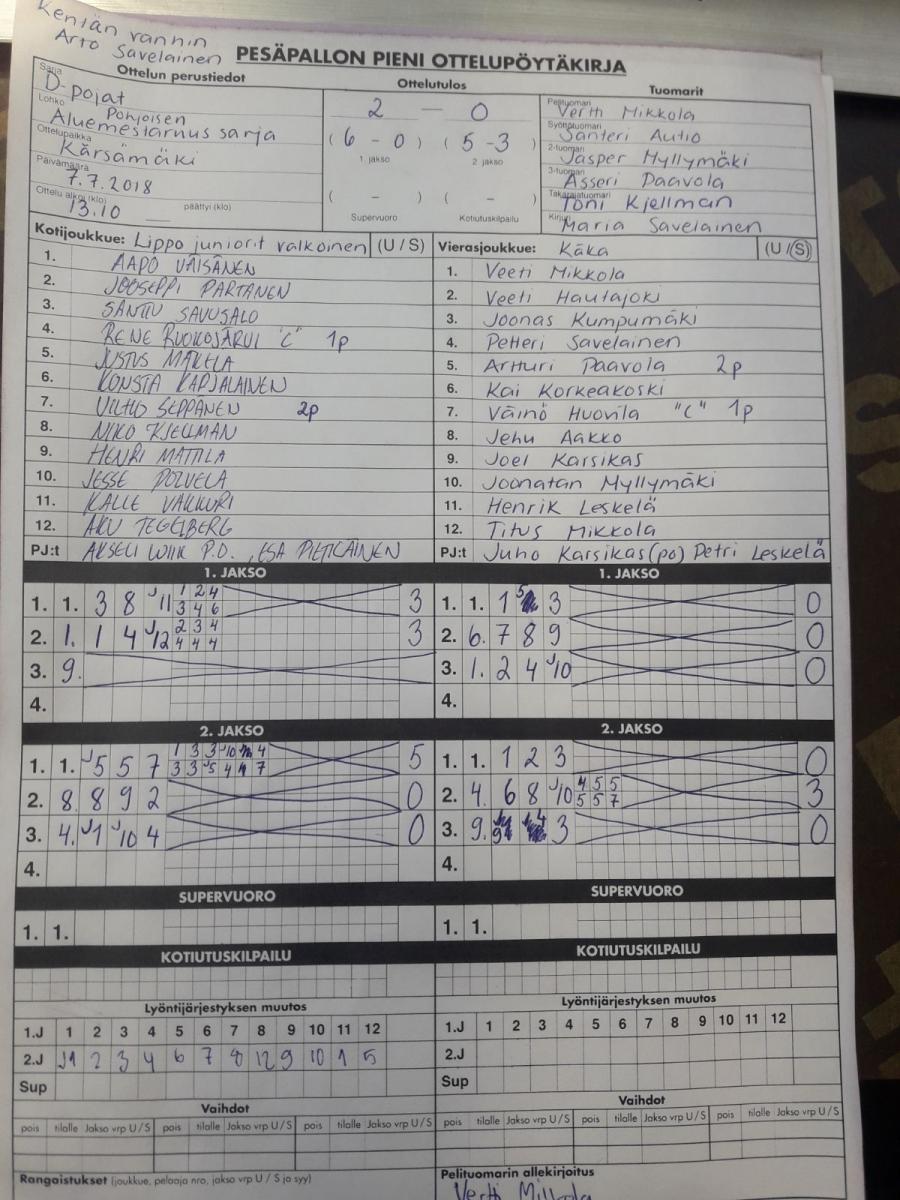 Kentän vanhin
Arto Savelainen
PESÄPALLON PIENI OTTELUPÖYTÄKIRJA
Ottelun perustiedot
Sarja D-pojat
Lohko Pohjoisen
Aluemestaruus sarja
Ottelupaikka Kärsämäki
Päivämäärä 7.7.2018
Ottelu alkoi (klo) 13.10 päättyi (klo)
Ottelutulos
2 – 0
( 6 - 0 ) ( 5 - 3 )
1. jakso 2. jakso
( - ) ( - )
Supervuoro Kotiutuskilpailu
Tuomarit
Pelituomari Vertti Mikkola
Syöttötuomari Santeri Autio
2-tuomari Jasper Myllymäki
3-tuomari Asseri Paavola
Takarajatuomari Toni Kjellman
Kirjuri Maria Savelainen
Kotijoukkue: Lippo juniorit valkoinen (U / S)
1. AAPO VÄISÄNEN
2. JOOSEPPI PARTANEN
3. SANTTU SAVUSALO
4. RENE RUOKOJÄRVI "C" 1p
5. JUSTUS MÄKELÄ
6. KONSTA KARJALAINEN
7. VILHO SEPPÄNEN 2p
8. NIKO KJELLMAN
9. HENRI MATTILA
10. JESSE POLVELA
11. KALLE VAKKURI
12. AKU TEGELBERG
PJ:t AKSELI WIIK P.O. , ESA PIETIKÄINEN
Vierasjoukkue: KäKa (U / S)
1. Veeti Mikkola
2. Veeti Hautajoki
3. Joonas Kumpumäki
4. Petteri Savelainen
5. Artturi Paavola 2p
6. Kai Korkeakoski
7. Väinö Huovila "C" 1p
8. Jehu Aakko
9. Joel Karsikas
10. Joonatan Myllymäki
11. Henrik Leskelä
12. Titus Mikkola
PJ:t Juho Karsikas (po) Petri Leskelä
1. JAKSO
1. 1. 3 8 J11 1 2 4 3
3 4 6
2. 1. 1 4 J12 2 3 4 3
4 4 4
3. 9.
4.
1. JAKSO
1. 1. 1 3 0
2. 6. 7 8 9 0
3. 1. 2 4 J10 0
4.
2. JAKSO
1. 1. J5 5 7 1 3 3 J10 4 5
3 3 J5 4 7
2. 8 8 9 2 0
3. 4. J1 J10 4 0
4.
2. JAKSO
1. 1. 1 2 3 0
2. 4. 6 8 J10 4 5 5 3
5 5 7
3. 9. 3 0
4.
SUPERVUORO
1. 1.
SUPERVUORO
1. 1.
KOTIUTUSKILPAILU
KOTIUTUSKILPAILU
Lyöntijärjestyksen muutos
1.J 1 2 3 4 5 6 7 8 9 10 11 12
2.J J1 2 3 4 6 7 8 12 9 10 1 5
Sup
Lyöntijärjestyksen muutos
1.J 1 2 3 4 5 6 7 8 9 10 11 12
2.J
Sup
Vaihdot
pois tilalle Jakso vrp U / S pois tilalle Jakso vrp U / S pois tilalle Jakso vrp U / S
Vaihdot
pois tilalle Jakso vrp U / S pois tilalle Jakso vrp U / S pois tilalle Jakso vrp U / S
Rangaistukset (joukkue, pelaaja nro, jakso vrp U / S ja syy)
Pelituomarin allekirjoitus
Vertti Mikkola